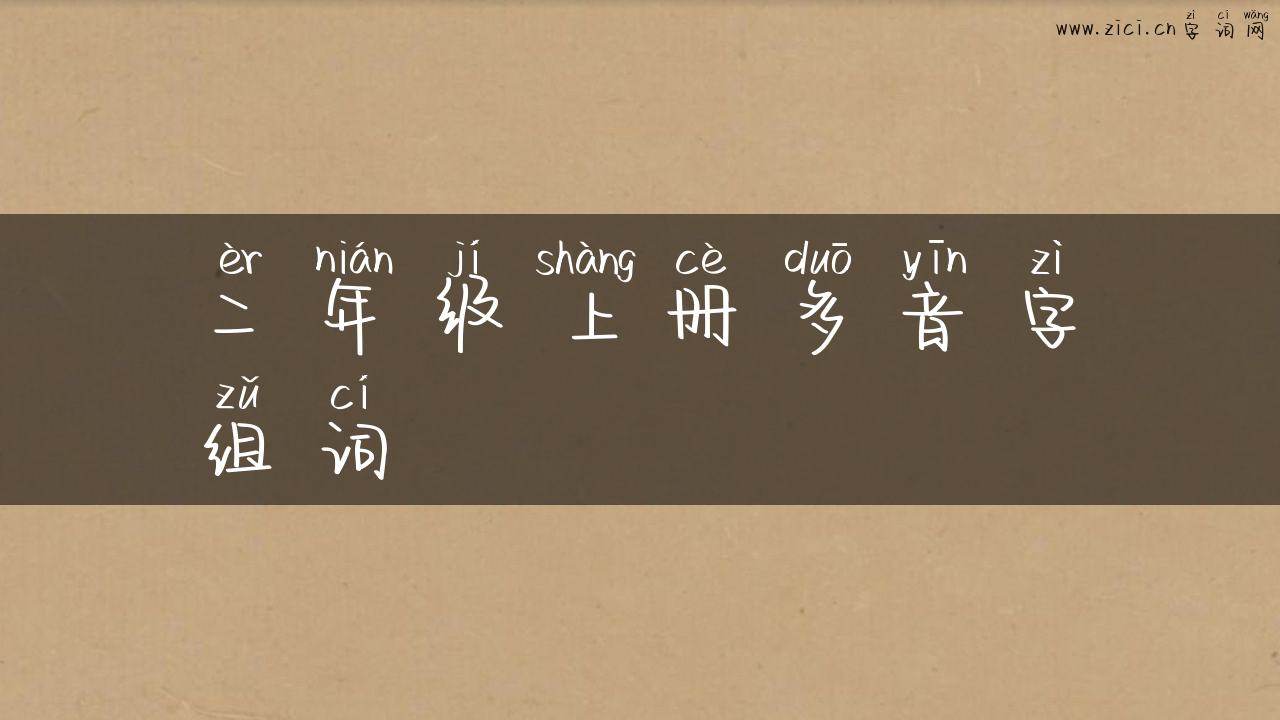 zì cí wǎng
www.zici.cn 字词网
èr nián jí shàng cè duō yīn zì
二年级上册多音字
zǔ cí
组词